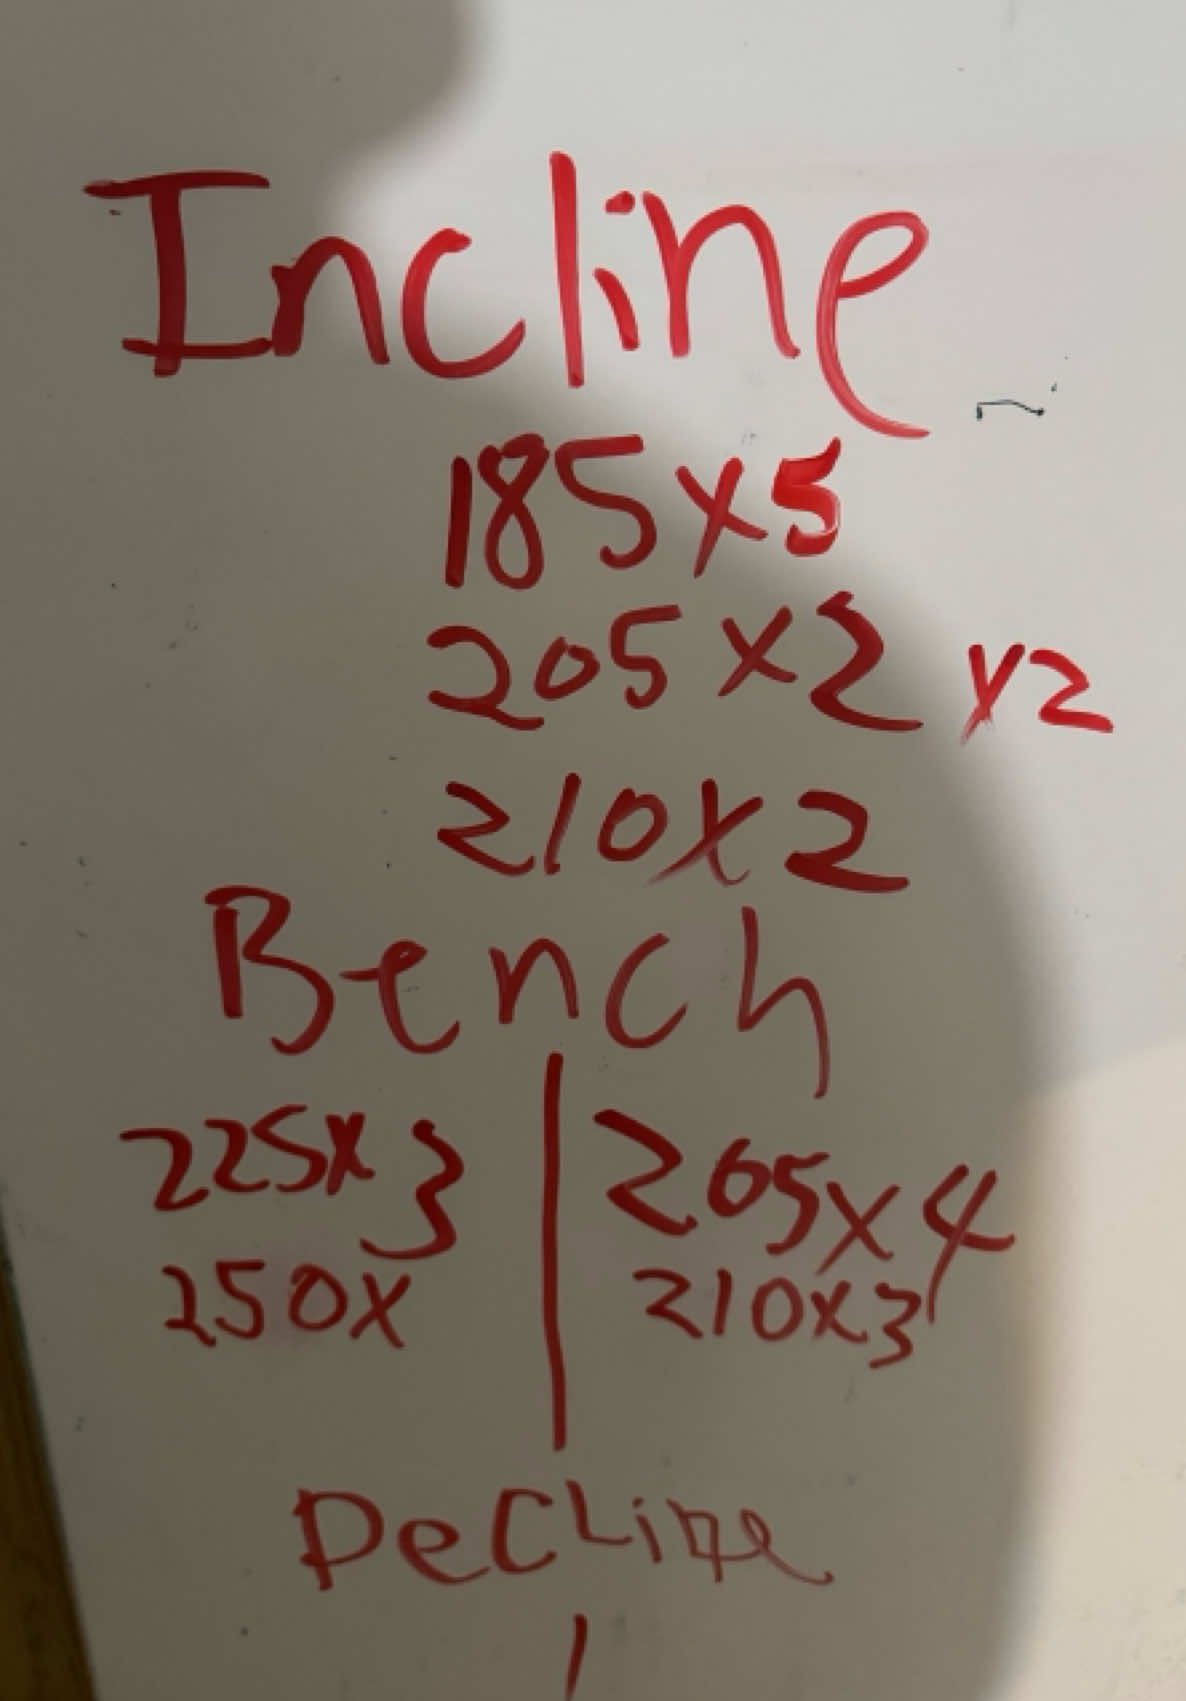 Incline
185x5
205x2 x2
210x2
Bench
225x3 | 205x4
250x | 210x3
Decline